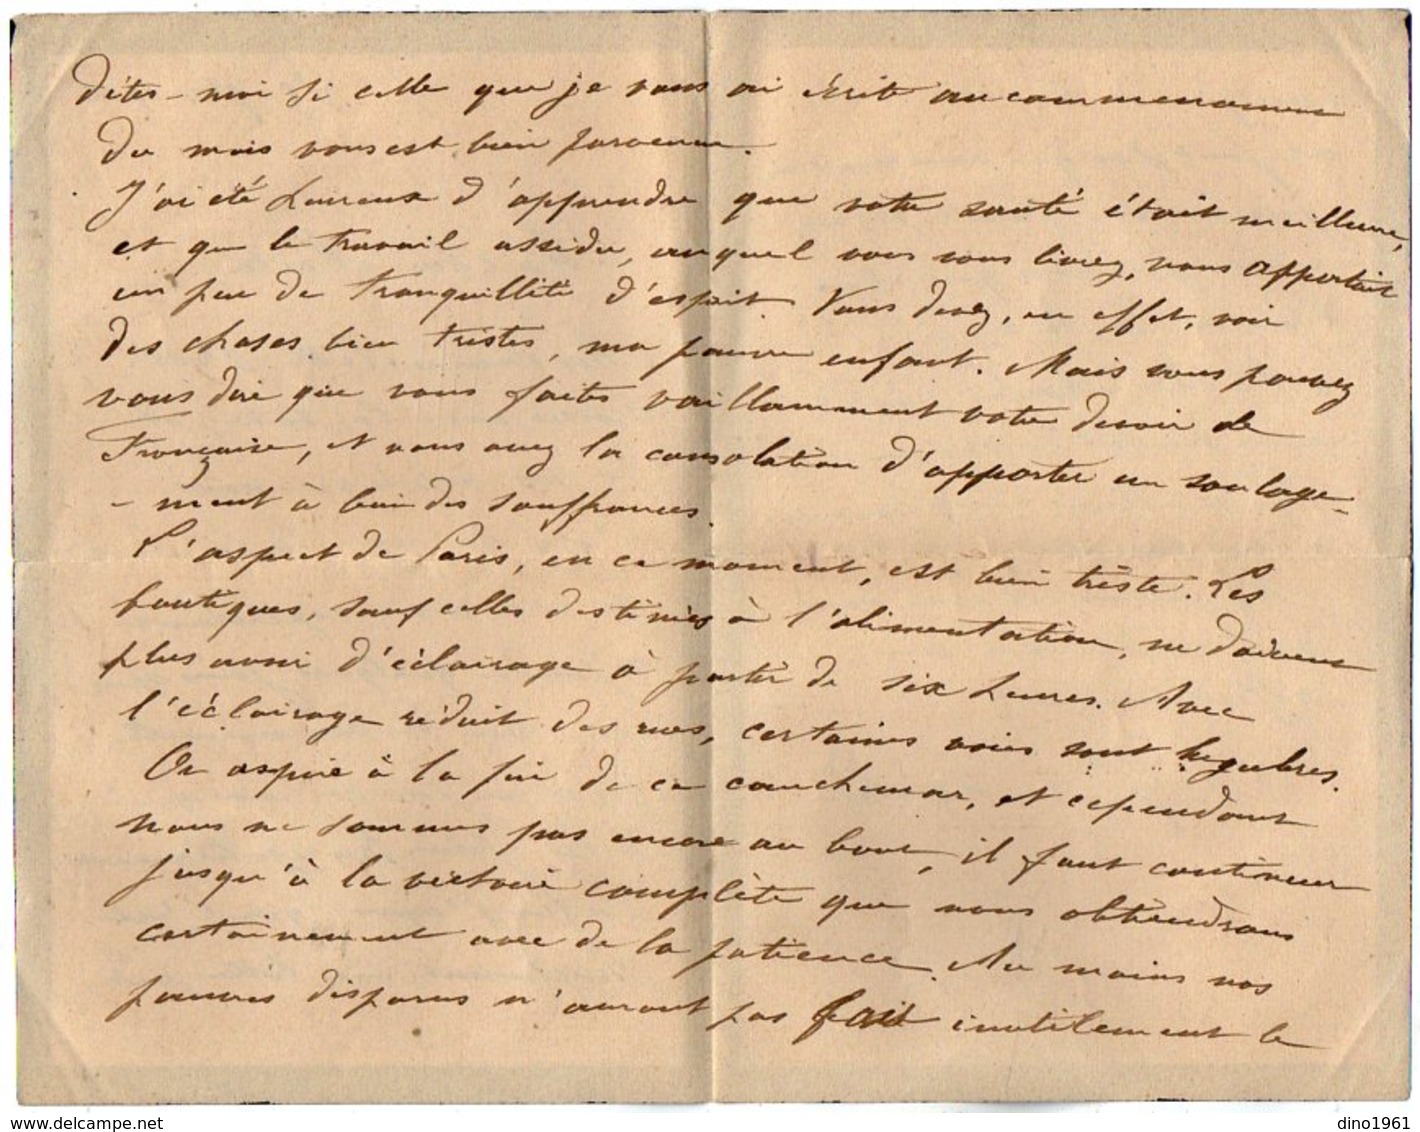 dites-moi si celle que je vous ai écrite au commencement
du mois vous est bien parvenue.
J'ai été heureux d'apprendre que votre santé était meilleure,
et que le travail assidu, auquel vous vous livrez, vous apportait
un peu de tranquillité d'esprit. Vous devez, en effet, voir
des choses bien tristes, ma pauvre enfant. Mais vous pouvez
vous dire que vous faites vaillamment votre devoir de
Française, et vous avez la consolation d'apporter un soulage-
-ment à bien des souffrances.
L'aspect de Paris, en ce moment, est bien triste. Les
boutiques, sauf celles destinées à l'alimentation, ne doivent
plus avoir d'éclairage à partir de six heures. Avec
l'éclairage réduit des rues, certaines voies sont lugubres.
On aspire à la fin de ce cauchemar, et cependant
nous ne sommes pas encore au bout, il faut continuer
jusqu'à la victoire complète que nous obtiendrons
certainement avec de la patience. Au moins nos
pauvres disparus n'auront pas fait inutilement le
delcampe.net
dino1961